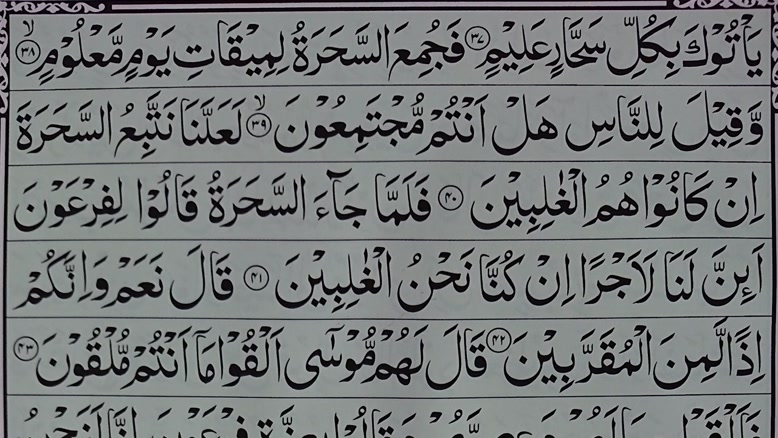 يَاْتُوْكَ بِكُلِّ سَحَّارٍ عَلِيْمٍ ۝۳۷ فَجُمِعَ السَّحَرَةُ لِمِيْقَاتِ يَوْمٍ مَّعْلُوْمٍ ۝۳۸ۙ
وَّقِيْلَ لِلنَّاسِ هَلْ اَنْتُمْ مُّجْتَمِعُوْنَ ۝۳۹ۙ لَعَلَّنَا نَتَّبِعُ السَّحَرَةَ
اِنْ كَانُوْا هُمُ الْغٰلِبِيْنَ ۝۴۰ فَلَمَّا جَآءَ السَّحَرَةُ قَالُوْا لِفِرْعَوْنَ
اَئِنَّ لَنَا لَاَجْرًا اِنْ كُنَّا نَحْنُ الْغٰلِبِيْنَ ۝۴۱ قَالَ نَعَمْ وَاِنَّكُمْ
اِذًا لَّمِنَ الْمُقَرَّبِيْنَ ۝۴۲ قَالَ لَهُمْ مُّوْسٰٓى اَلْقُوْا مَآ اَنْتُمْ مُّلْقُوْنَ ۝۴۳